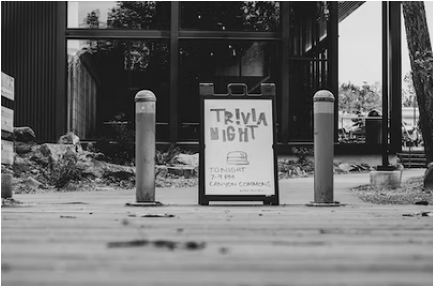 TRIVIA
NIGHT
TONIGHT
7-9 PM
CANYON COMMONS